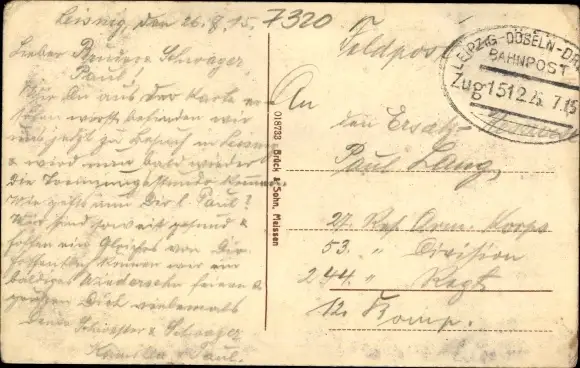 Leisnig, den 26.8.15.
7320
Lieber Bruder & Schwager,
Paul!
Wie Du aus der Karte er-
sehen wirst befinden wir
uns jetzt zu Besuch in Leisnig
& wird nun bald wieder
die Trennungsstunde kommen.
Wie geht's uns Dir l. Paul?
Wir sind soweit gesund &
hoffen ein Gleiches von Dir.
Hoffentlich können wir ein
baldiges Wiedersehn feiern &
grüßen Dich vielemals
Deine Schwester & Schwager
Kamilla & Paul.
018733 Brück & Sohn, Meissen
Feldpost
LEIPZIG-DÖBELN-DR
BAHNPOST
Zug 1512 7.15
An
den Ersatz-
Paul Lang,
27. Res. Arm. Korps
53. " Division
244. " Regt
12. Komp.